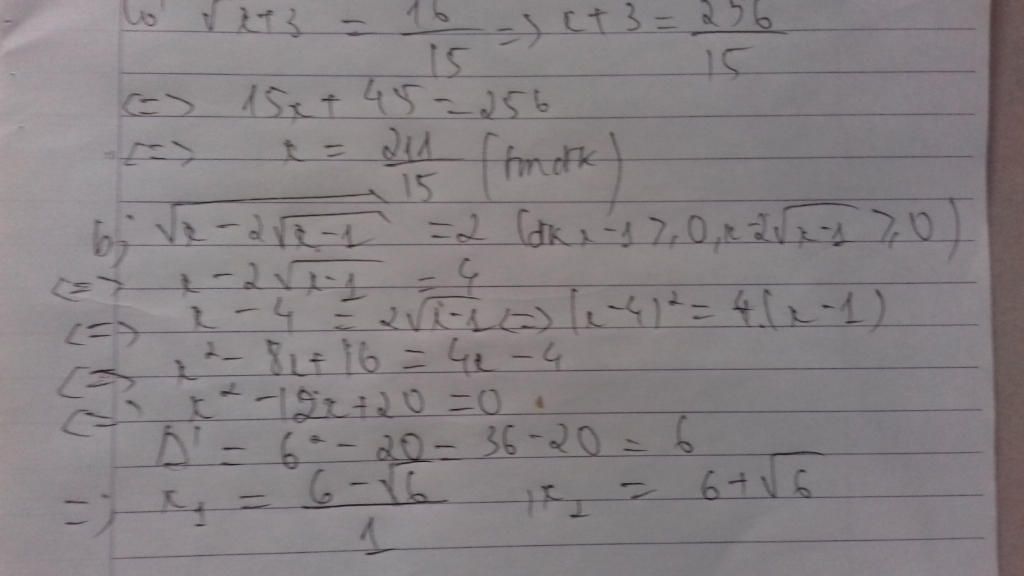 √(x+3) = 16/15 => x+3 = 256/15
<=> 15x + 45 = 256
<=> x = 211/15 (tmđk)
b, √(x-2√(x-1)) = 2 (đk x-1 ≥ 0, x-2√(x-1) ≥ 0)
<=> x - 2√(x-1) = 4
<=> x - 4 = 2√(x-1) <=> (x-4)² = 4.(x-1)
<=> x² - 8x + 16 = 4x - 4
<=> x² - 12x + 20 = 0
Δ' = 6² - 20 = 36 - 20 = 6
=> x₁ = (6-√6)/1 , x₂ = 6+√6